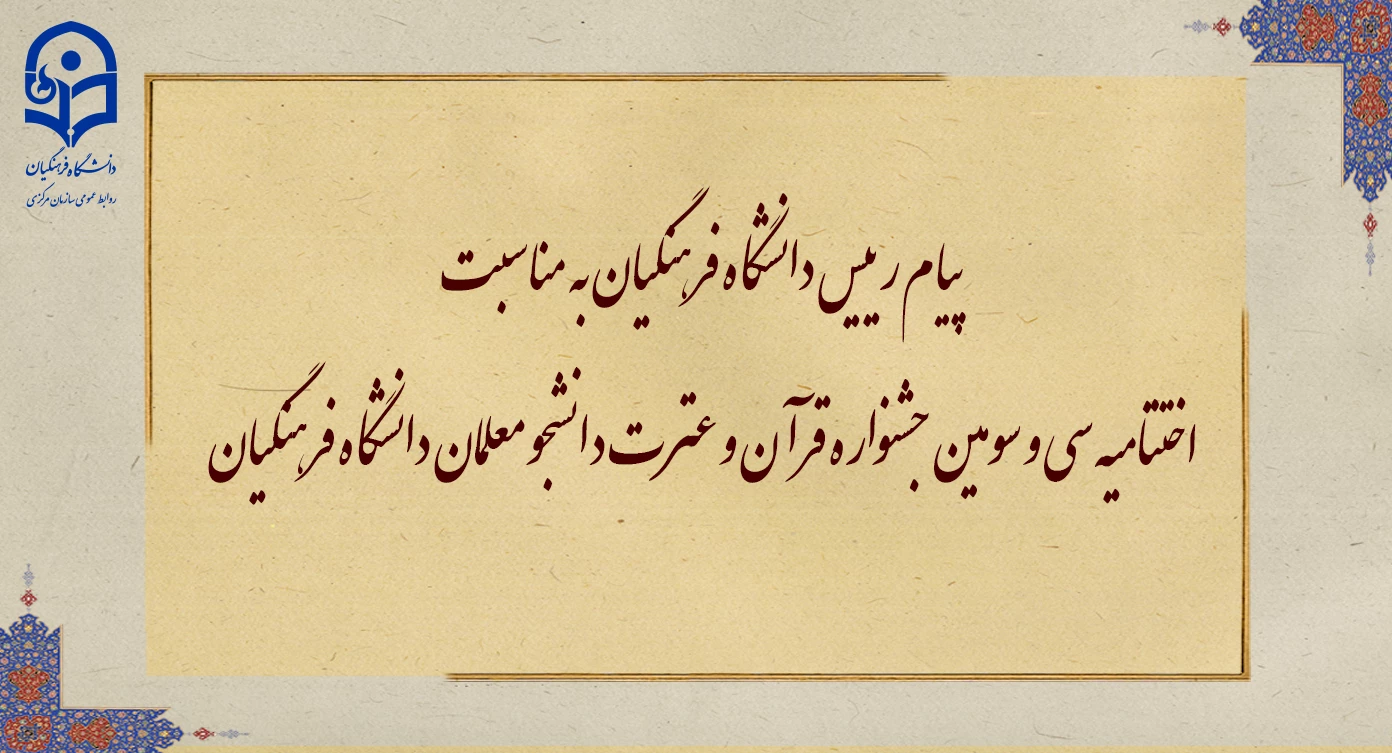 دانشگاه فرهنگیان
روابط عمومی سازمان مرکزی
پیام رییس دانشگاه فرهنگیان به مناسبت
اختتامیه سی و سومین جشنواره قرآن و عترت دانشجو معلمان دانشگاه فرهنگیان